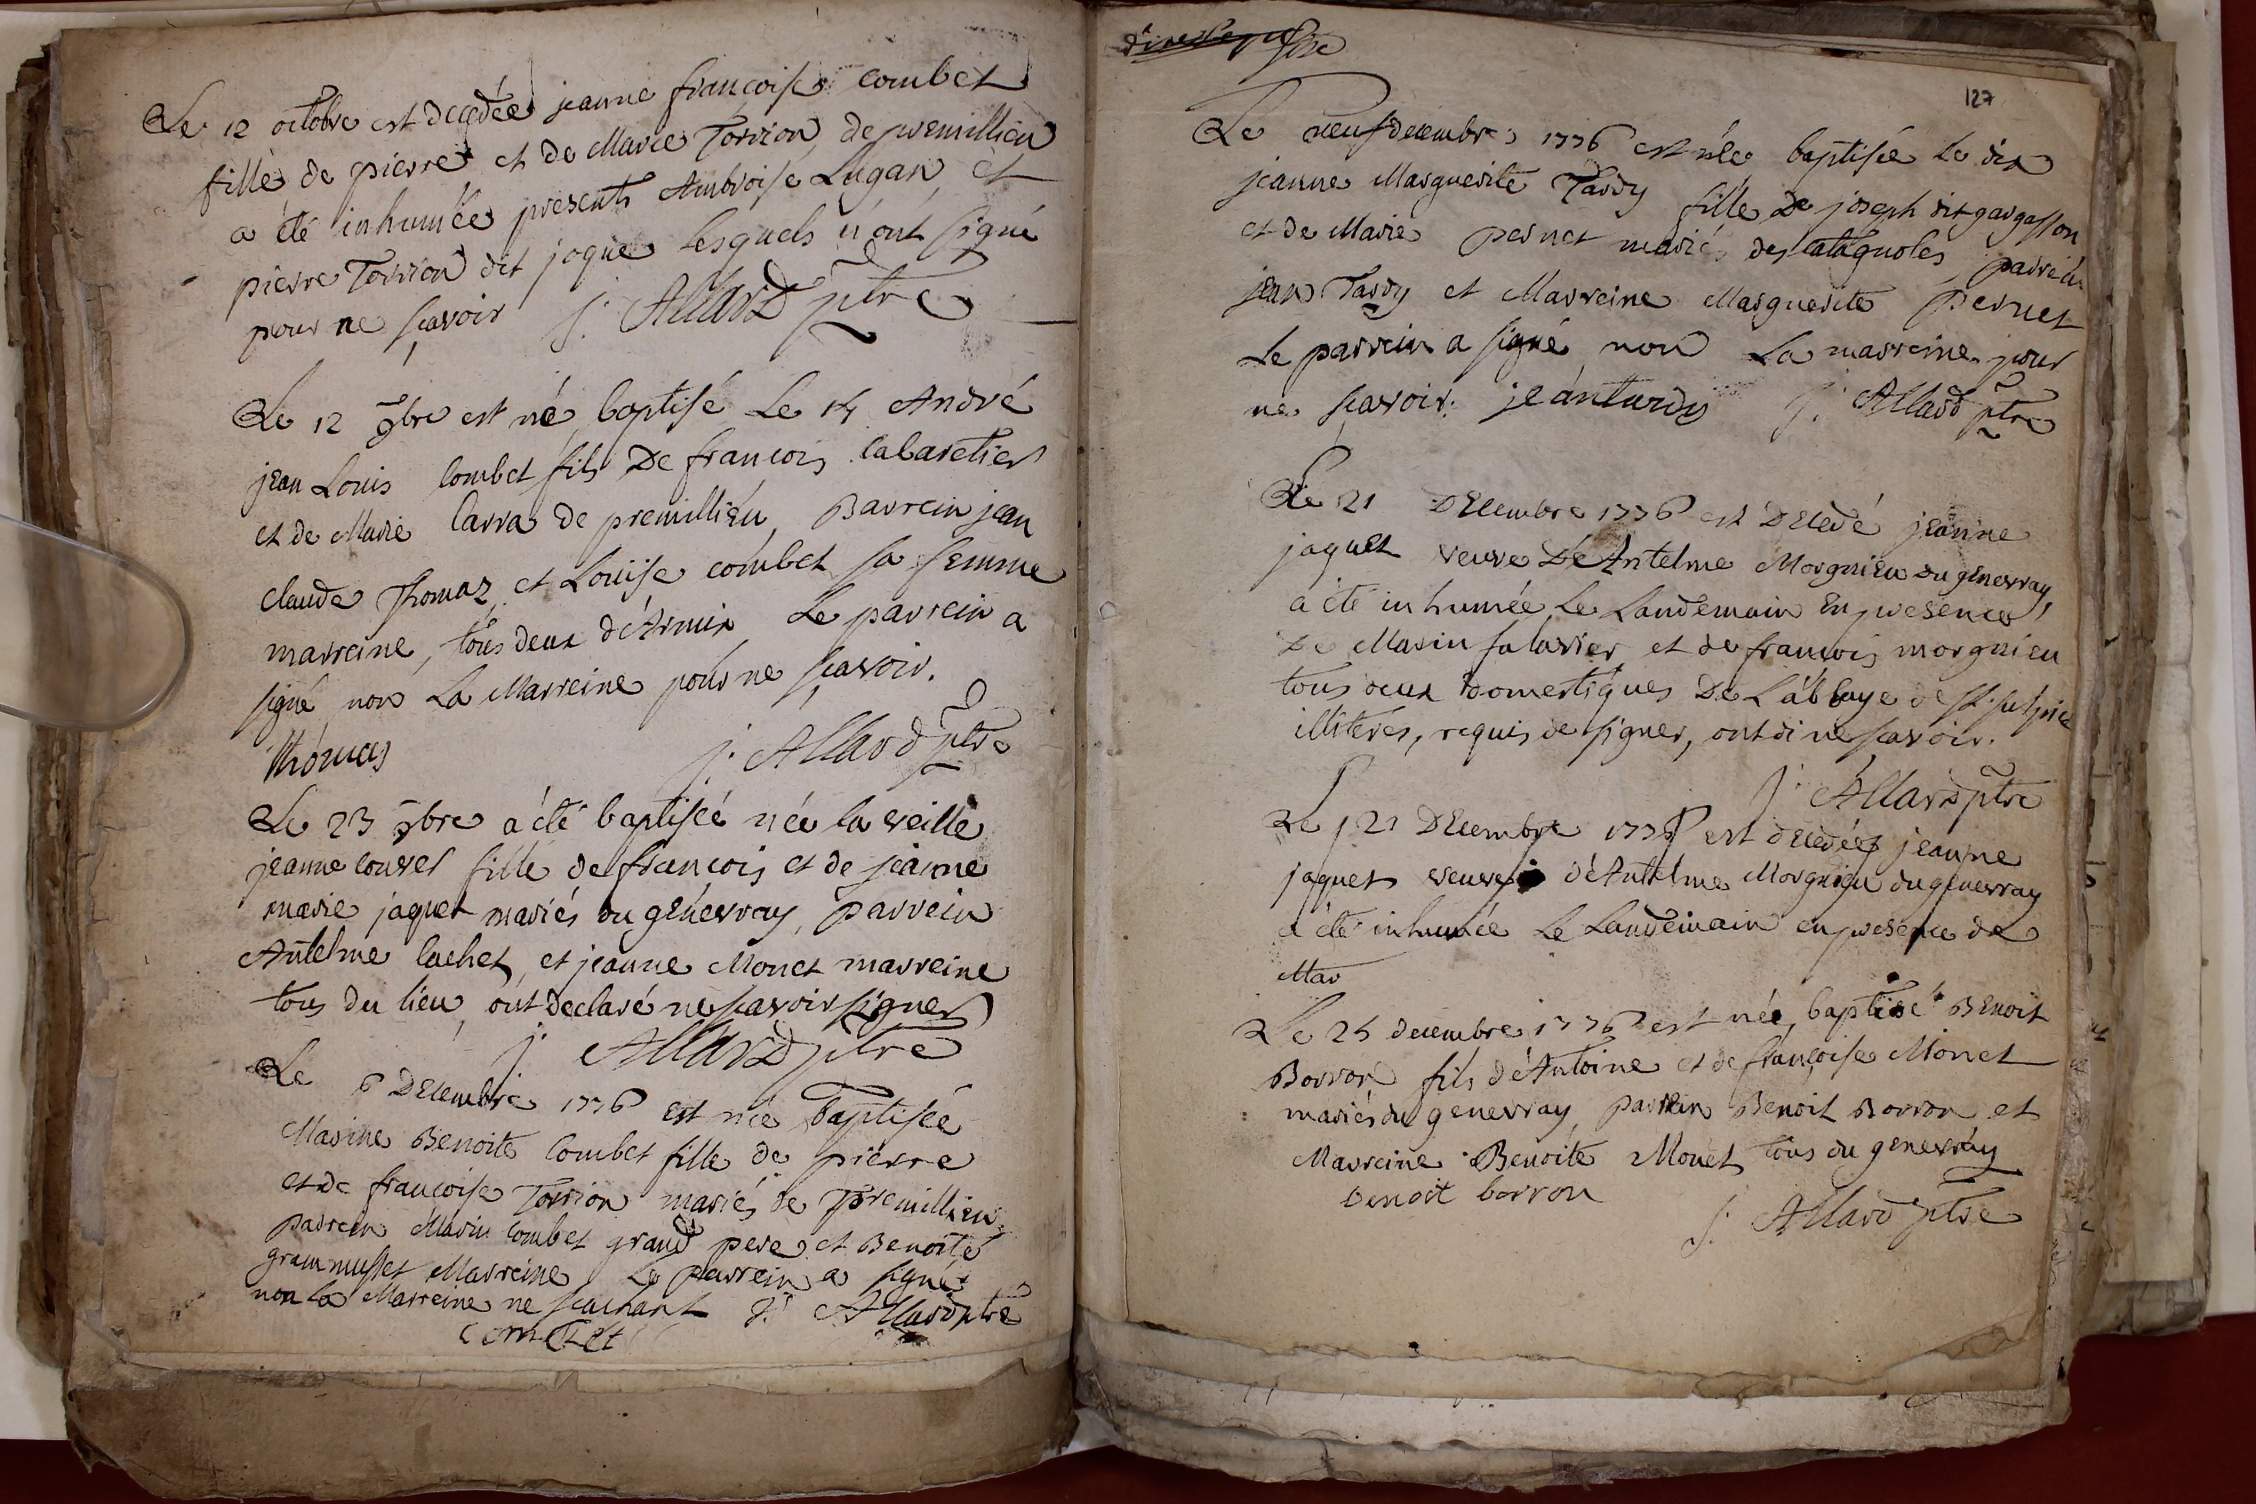 Le 12 octobre est decedée jeanne françoise combet
fille de pierre et de Marie Torrion de premillieu
a été inhumée presents Ambroise Lugan et
pierre Torrion dit joque lesquels n'ont signé
pour ne sçavoir j. Allard ptre
Le 12 9bre est né, baptisé le 14 André
jean Louis Combet fils De francois cabaretier
et de Marie Carra de premillieu, Parrein jean
claude Thomaz et Louise combet sa femme
marreine, tous deux d'Armix Le parrein a
signé non La Marreine pour ne sçavoir.
thomas j. Allard ptre
Le 23 9bre a été baptisée née la veille
jeanne couvel fille de francois et de jeanne
marie jaquet mariés du genevray, parrein
Antelme lachet, et jeanne Monet marreine
tous du lieu, ont declaré ne sçavoir signer
j. Allard ptre
Le 6 Decembre 1776 est née baptisée
Marine Benoite Combet fille de pierre
et de francoise Torrion mariés de Premillieu,
parrein Marin combet grand pere et Benoite
grammusset Marreine Le parrein a signé
non la Marreine ne scachant j. Allard ptre
combet
127
Le neuf decembre 1776 est née baptisée le dix
jeanne Marguerite Tardy fille De joseph dit gargasson
et de Marie pernet mariés des catagnoles, parrein
jean Tardy et Marreine Marguerite pernet
Le parrein a signé non La marreine pour
ne sçavoir. jeantardy j. Allard ptre
Le 21 Decembre 1776 est Decedé jeanne
jaquet veuve De Antelme Morgnieu du genevray,
a été inhumée Le Landemain En presence
De Marin falavier et de francois morgnieu
tous deux domestiques De L'abbaye de St. sulpice
illiterés, requis de signer, ont di ne sçavoir.
j. Allard ptre
Le 21 Decembre 1776 est decedée jeanne
jaquet veuve d'Antelme Morgnieu du genevray
a été inhumée Le Landemain en presence de
Mar
Le 25 decembre 1776 est née, baptisé Benoit
Borron fils d'Antoine et de françoise Monet
mariés du genevray, parrein Benoit Borron et
Marreine Benoite Monet tous du genevray
benoit borron j. Allard ptre